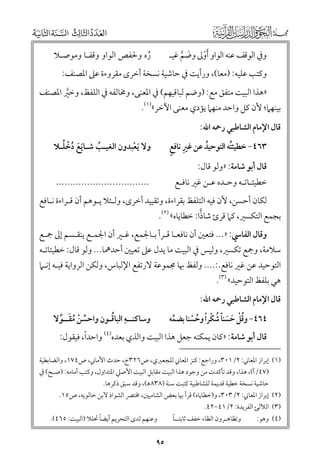 مجلة معهد الإمام الشاطبي للدراسات القرآنية العدد الثالث السنة الثانية
وفي الوقف عنه الواو أوْلَى وَضَمَّ غيـ ـرُه ولحفص الواو وقفـا وموصـلا
وكتب عليه: (معا)، ورأيت في حاشية نسخة أخرى مقروءة على المصنف:
«هذا البيت متفق مع: (وضم لباقيهم) في المعنى، ومخالفه في اللفظ، وخيَّر المصنف
بينهما؛ لأن كل واحد منهما يؤدي معنى الآخر»(١).
قال الإمام الشاطبي رحمه الله:
٤٦٣- خطيئتُه التوحيد عن غير نافعٍ ولا يَعْبدون الغيـبُ شَـايَعَ دُخْلُـلا
قال أبو شامة: «ولو قال:
خطيئاتـه وحـده عـن غير نافـع ................................
لكان أحسن، لأن فيه التلفظ بقراءة، وتقييد أخرى، ولـئلا يـوهـم أن قـراءة نـافـع
بجمع التكسير، كما قرئ شاذًا: خطاياه»(٢).
وقال الفاسي: «... فتعين أن نافعـا قـرأ بـالجمع، غـير أن الجمـع ينقسـم إلى جمـع
سلامة، وجمع تكسير، وليس في البيت ما يدل على تعيين أحدهما... ولو قال: خطيئاتـه
التوحيد عن غير نافع.:... ولفظ بها مجموعة لارتفع الإلباس، ولكن الرواية فيـه إنـما
هي بلفظ التوحيد»(٣).
قال الإمام الشاطبي رحمه الله:
٤٦٤- وقُلْ حَسَنًا شُكْرًا وحُسْنًا بضمِّه وسـاكنـه البـاقُـون واحسُـنْ مُقَـوِّلا
قال أبو شامة: «كان يمكنه جعل هذا البيت والذي بعده(٤) واحدًا، فيقول:
(١) إبراز المعاني: ٣٠١/٢، وراجع: كنز المعاني للجعبري، ص٣٢٦خ، حدث الأماني، ص١٧٤، والضابطية
(٤٧/أ)، هذا، وقد تأكدت من وجود هذا البيت مقابل البيت الأصلي المتداول، وكتب أمامه: (صـح) في
حاشية نسخة خطية قديمة للشاطبية كتبت سنة (٨٣٨هـ)، وقد سبق ذكرها.
(٢) إبراز المعاني: ٣٠٢/٢، و(خطاياه) قرأ بها بعض الشاميين، مختصر الشواذ لابن خالويه، ص١٥.
(٣) اللآلئ الفريدة: ٤١/٢-٤٢.
(٤) وهو: وتظاهـرون الظاء خفف ثابتـا وعنهم لدى التحريم أيضًا تحللا (البيت: ٤٦٥).
٩٥